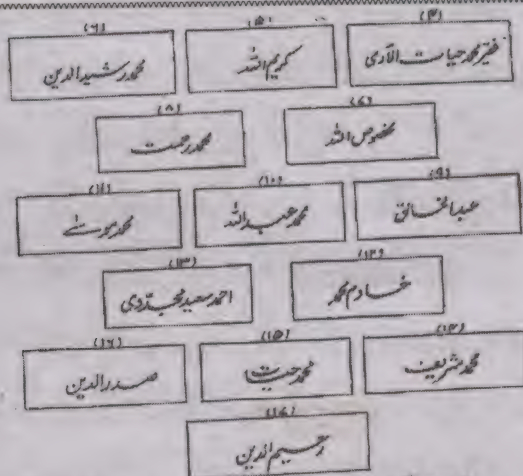 (۴) (۵) (۶)
فقیر محمد حیات اللاری کریم اللہ محمد رشید الدین
(۷) (۸)
مخصوص اللہ محمد رحمت
(۹) (۱۰) (۱۱)
عبدالخالق محمد عبداللہ محمد موسےٰ
(۱۲) (۱۳)
خادم محمد احمد سعید مجدّدی
(۱۴) (۱۵) (۱۶)
محمد شریف محمد حیات صدرالدین
(۱۷)
رحیم الدین